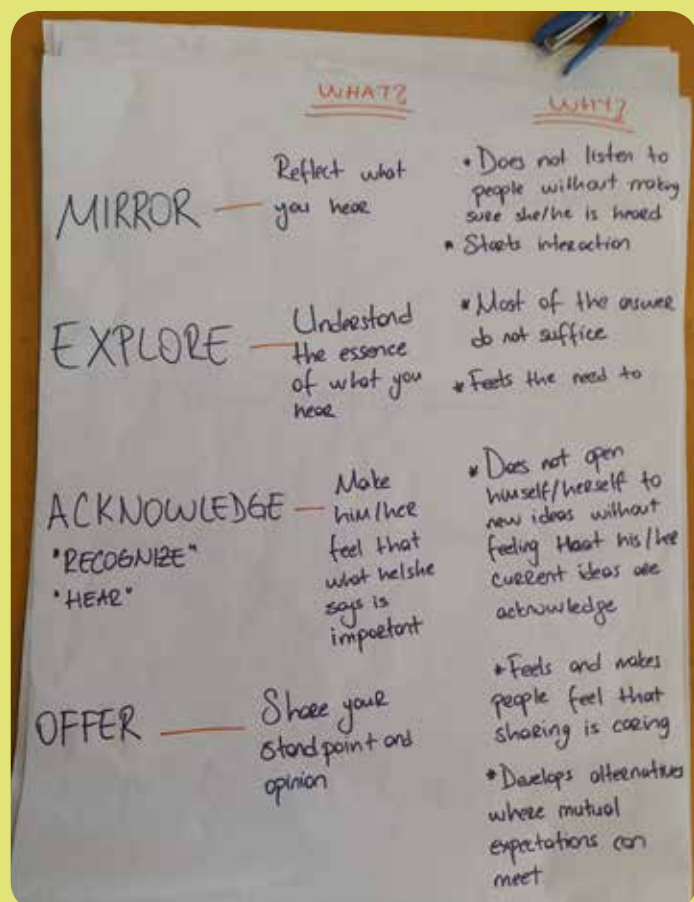 WHAT?
WHY?
MIRROR
Reflect what
you hear
• Does not listen to
people without making
sure she/he is heard
• Starts interaction
EXPLORE
Understand
the essence
of what you
hear
* Most of the answer
do not suffice
* Feels the need to
ACKNOWLEDGE
"RECOGNIZE"
"HEAR"
Make
him/her
feel that
what he/she
says is
important
* Does not open
himself/herself to
new ideas without
feeling that his/her
current ideas are
acknowledge
OFFER
Share your
standpoint and
opinion
* Feels and makes
people feel that
sharing is caring
* Develops alternatives
where mutual
expectations can
meet